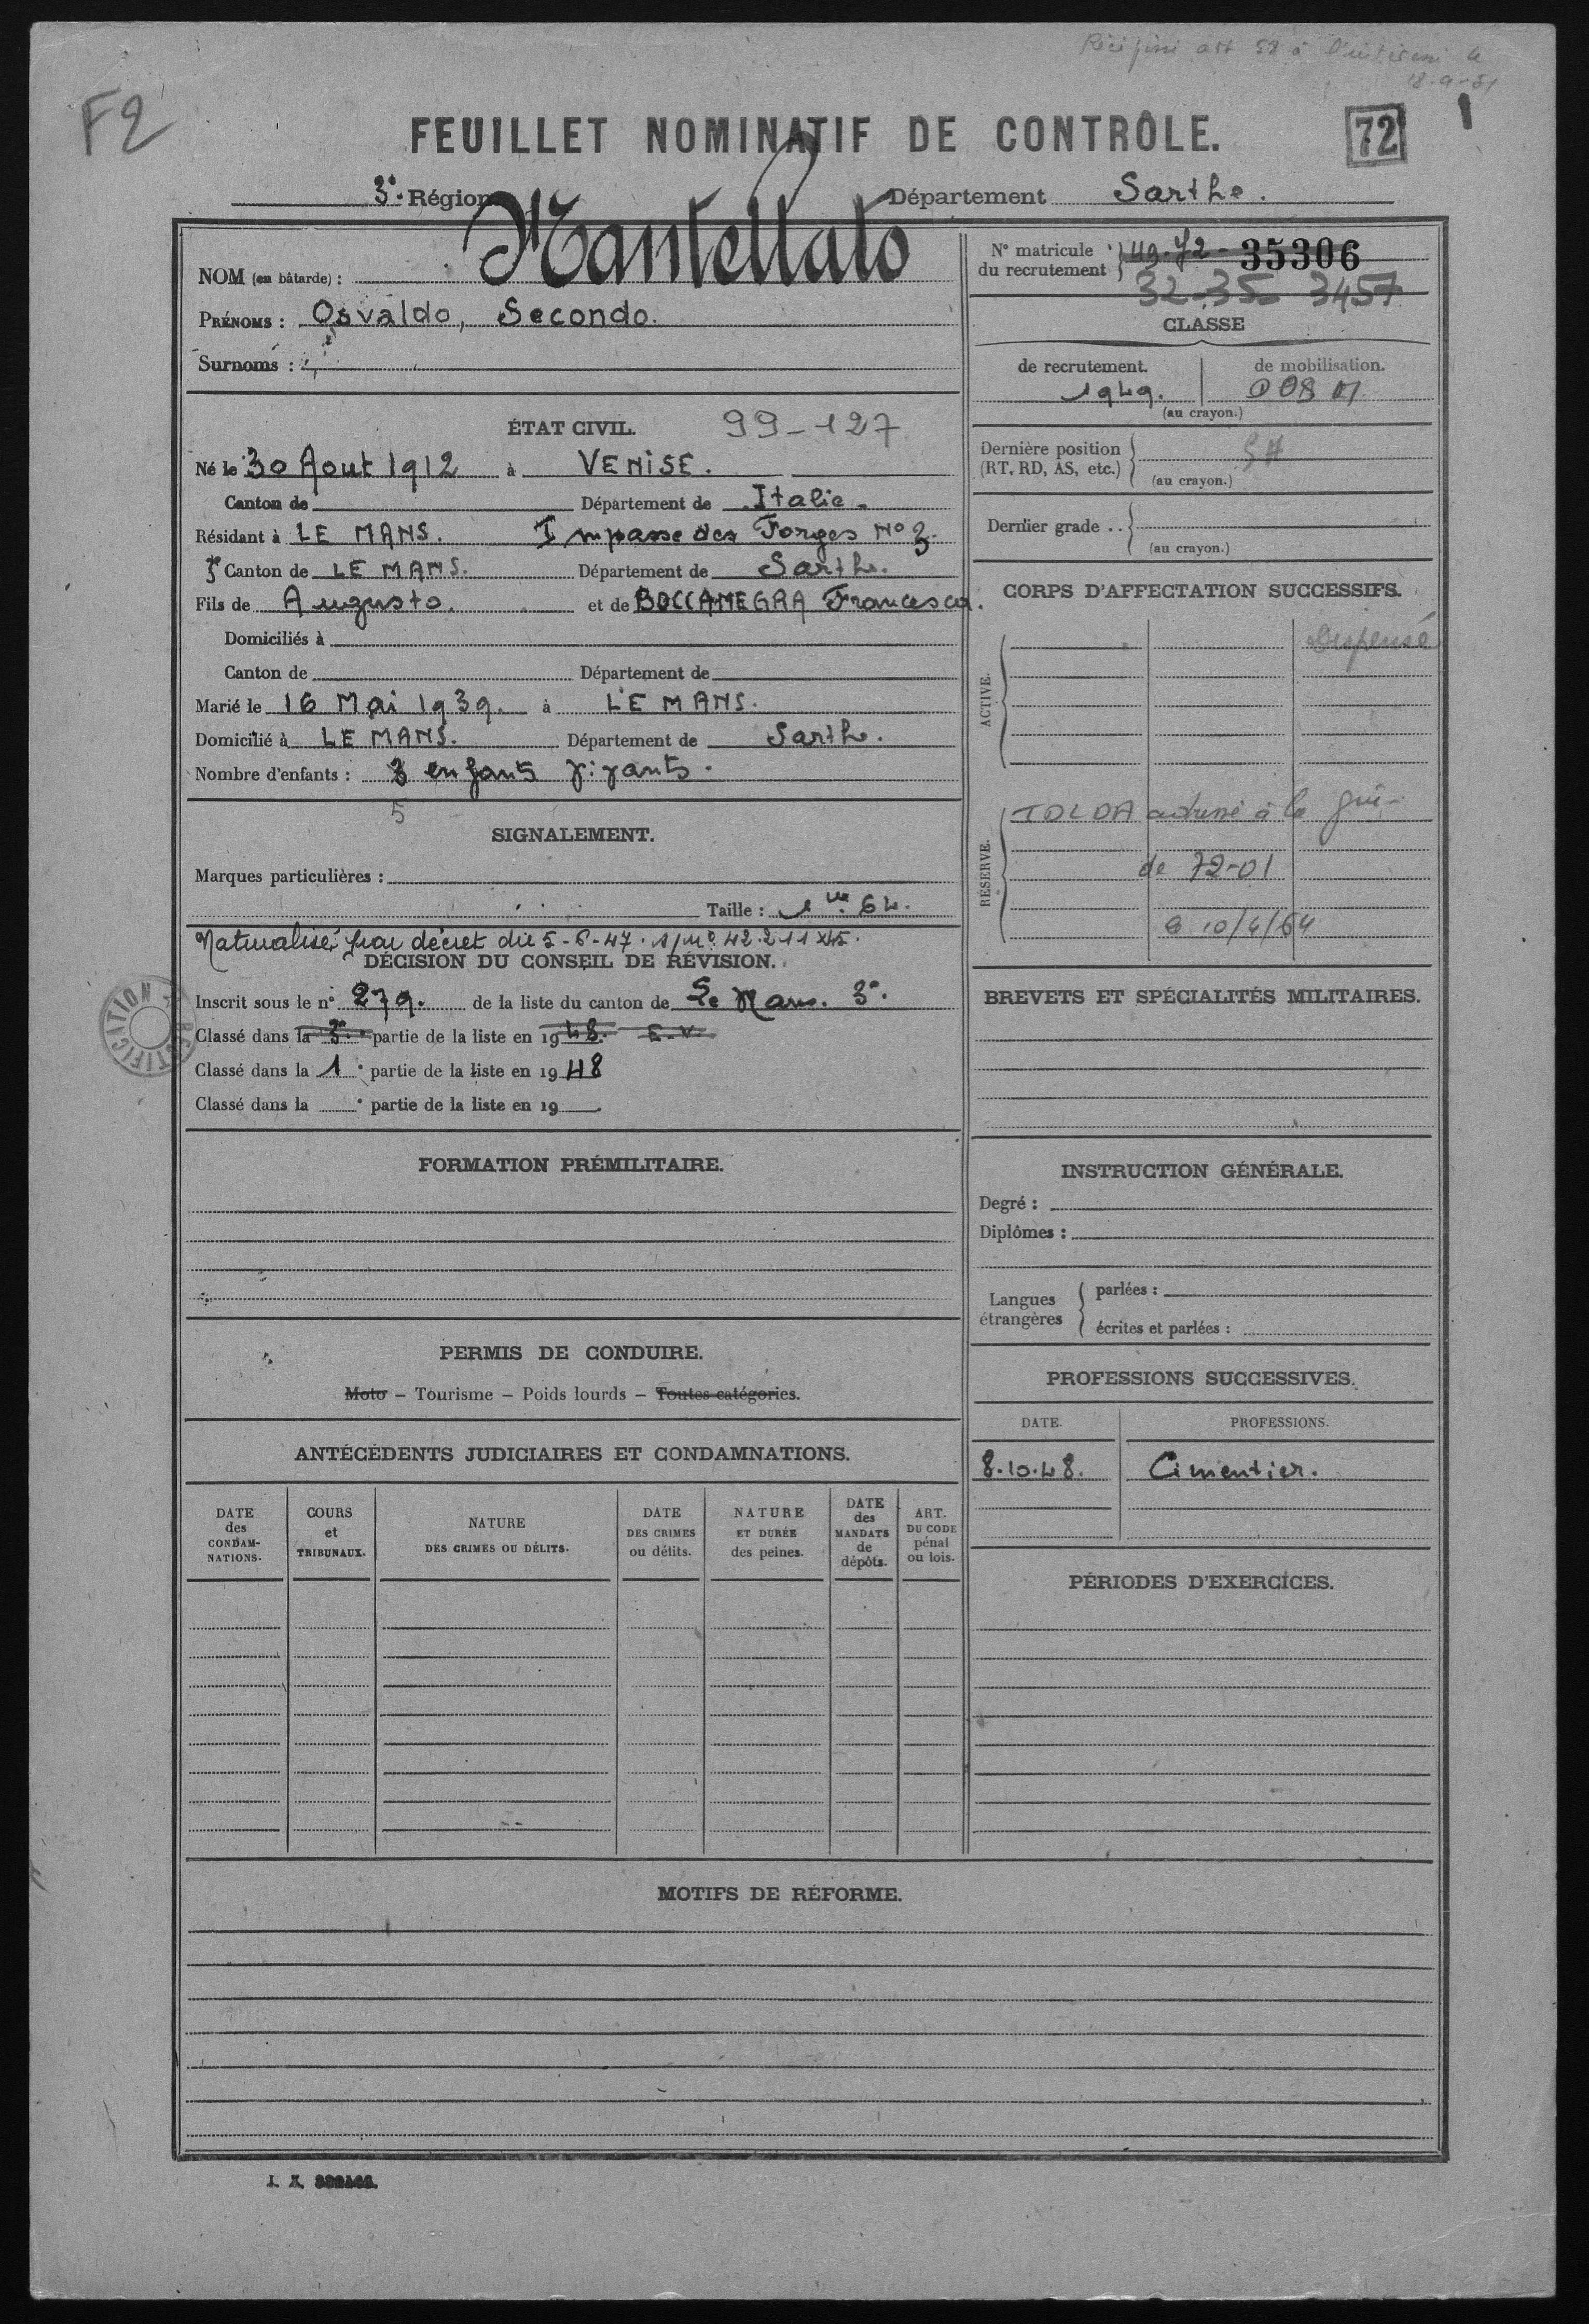 F2
18-9-51
FEUILLET NOMINATIF DE CONTRÔLE.
72
3e Région
Département Sarthe.
NOM (en bâtarde) : Mantellato
PRÉNOMS : Osvaldo, Secondo.
Surnoms :
ÉTAT CIVIL. 99-127
Né le 30 Aout 1912 à VENISE.
Canton de Département de Italie.
Résidant à LE MANS. Impasse des Forges No 3.
3e Canton de LE MANS. Département de Sarthe.
Fils de Augusto. et de BOCCANEGRA Francesca.
Domiciliés à
Canton de Département de
Marié le 16 Mai 1939. à LE MANS.
Domicilié à LE MANS. Département de Sarthe.
Nombre d'enfants : 3 enfants vivants.
5
SIGNALEMENT.
Marques particulières :
Taille : 1m 64.
Naturalisé par décret du 5-6-47. s/no 42.211 X45.
DÉCISION DU CONSEIL DE RÉVISION.
Inscrit sous le n° 279. de la liste du canton de Le Mans. 3e.
Classé dans la 3e partie de la liste en 1948.
Classé dans la 1e partie de la liste en 1948
Classé dans la e partie de la liste en 19
RECTIFICATION
FORMATION PRÉMILITAIRE.
PERMIS DE CONDUIRE.
Moto – Tourisme – Poids lourds – Toutes catégories.
ANTÉCÉDENTS JUDICIAIRES ET CONDAMNATIONS.
DATE des CONDAMNATIONS.
COURS et TRIBUNAUX.
NATURE DES CRIMES OU DÉLITS.
DATE DES CRIMES ou délits.
NATURE ET DURÉE des peines.
DATE des MANDATS de dépôts.
ART. DU CODE pénal ou lois.
N° matricule du recrutement 49-72-35306
32-35 3457
CLASSE
de recrutement. de mobilisation.
1949.
(au crayon.)
Dernière position (RT, RD, AS, etc.)
(au crayon.)
Dernier grade ..
(au crayon.)
CORPS D'AFFECTATION SUCCESSIFS.
ACTIVE.
Dispensé
RÉSERVE.
à la
de 72-01
10/4/64
BREVETS ET SPÉCIALITÉS MILITAIRES.
INSTRUCTION GÉNÉRALE.
Degré :
Diplômes :
Langues étrangères
parlées :
écrites et parlées :
PROFESSIONS SUCCESSIVES.
DATE. PROFESSIONS.
8.10.48. Cimentier.
PÉRIODES D'EXERCICES.
MOTIFS DE RÉFORME.